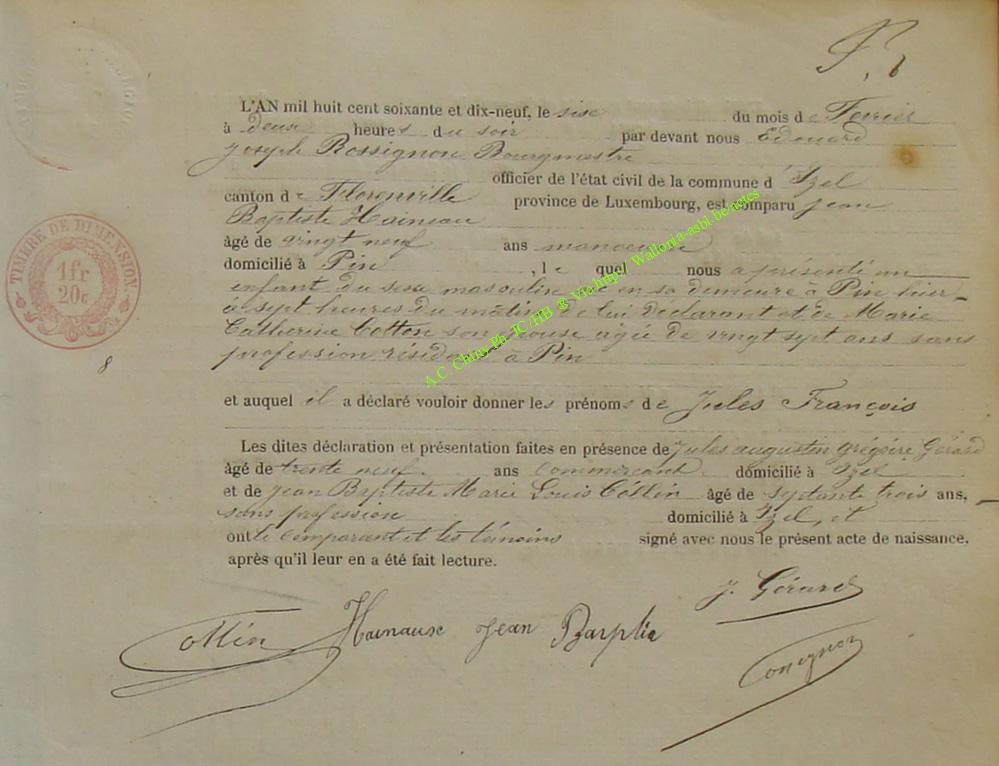 L'AN mil huit cent soixante et dix-neuf, le six du mois de Fevrier
à deux heures du soir par devant nous Edouard
Joseph Rossignon Bourgmestre
officier de l'état civil de la commune d'Izel
canton de Florenville province de Luxembourg, est comparu Jean
Baptiste Hainaux
âgé de vingt neuf ans manoeuvre
domicilié à Pin, lequel nous a présenté un
enfant du sexe masculin né en sa demeure à Pin hier
à sept heures du matin de lui déclarant et de Marie
Catherine Cotton son épouse agée de vingt sept ans sans
profession résidant à Pin
8
et auquel il a déclaré vouloir donner les prénoms de Jules François
Les dites déclaration et présentation faites en présence de Jules augustin grégoire Gérard
âgé de trente neuf ans commercant domicilié à Izel
et de Jean Baptiste Marie Louis Collin âgé de septante trois ans,
sans profession domicilié à Izel, et
ont le comparant et les témoins signé avec nous le présent acte de naissance,
après qu'il leur en a été fait lecture.
J. Gérard
Collin Hainaux Jean Baptis
TIMBRE DE DIMENSION
1fr
20c
A.C. Chiny Ph. JC/HB ® Via http// Wallonia-asbl.be/actes